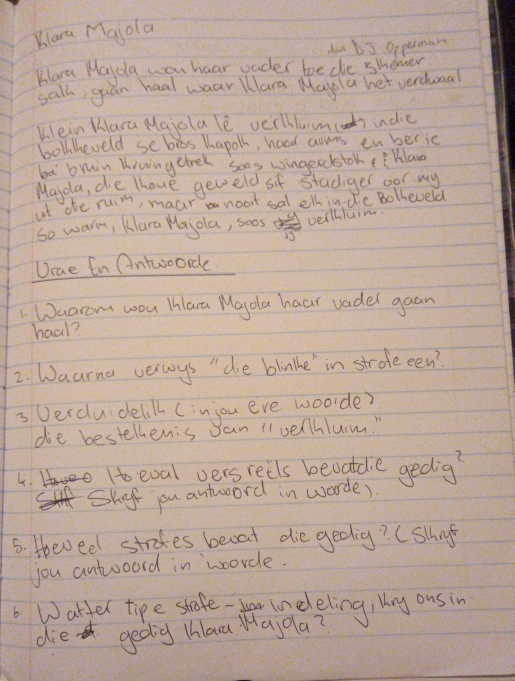 Klara Majola
deur DJ Opperman
Klara Majola wou haar vader toe die skemer
sak, gaan haal waar Klara Majola het verdwaal
Klein Klara Majola lê verkluim in die
bokkeveld se bros kapok, haar arms en
bruin kruingetrek soos wingerdstok. Klara
Majola, die koue geweld sif stadiger oor my
uit die ruim, maar nooit sal ek in die Bokeveld
so warm, Klara Majola, soos
jy verkluim.
Vrae En Antwoorde
1. Waarom wou Klara Majola haar vader gaan
haal?
2. Waarna verwys "die blinke" in strofe een?
3. Verduidelik (in jou eie woorde)
die betekenis van "verkluim."
4. Hoeval versreëls bevat die gedig?
Skryf jou antwoord in woorde).
5. Hoeveel strofes bevat die gedig? (Skryf
jou antwoord in woorde.
6. Watter tipe strofe - indeling, kry ons in
die gedig Klara Majola?